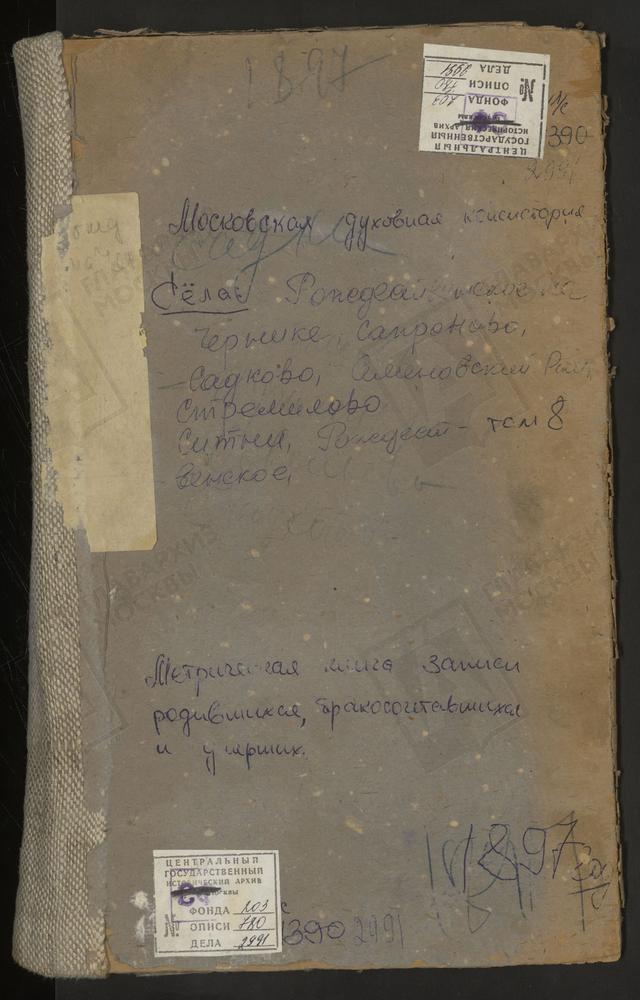 1897
ЦЕНТРАЛЬНЫЙ
ГОСУДАРСТВЕННЫЙ
ИСТОРИЧЕСКИЙ АРХИВ
№ ФОНДА 203
ОПИСИ 780
ДЕЛА 2991
390
2991
Московская духовная консистория
Сёла: Рождественское на
Чернике, Сапроново,
Садково,
Стремилово
Ситни, Рождест- том 8
венское,
Метрическая книга записи
родившихся, бракосочетавшихся
и умерших.
1897
ЦЕНТРАЛЬНЫЙ
ГОСУДАРСТВЕННЫЙ
ИСТОРИЧЕСКИЙ АРХИВ
МОСКВЫ
№ ФОНДА 203
ОПИСИ 780
ДЕЛА 2991
390 2991